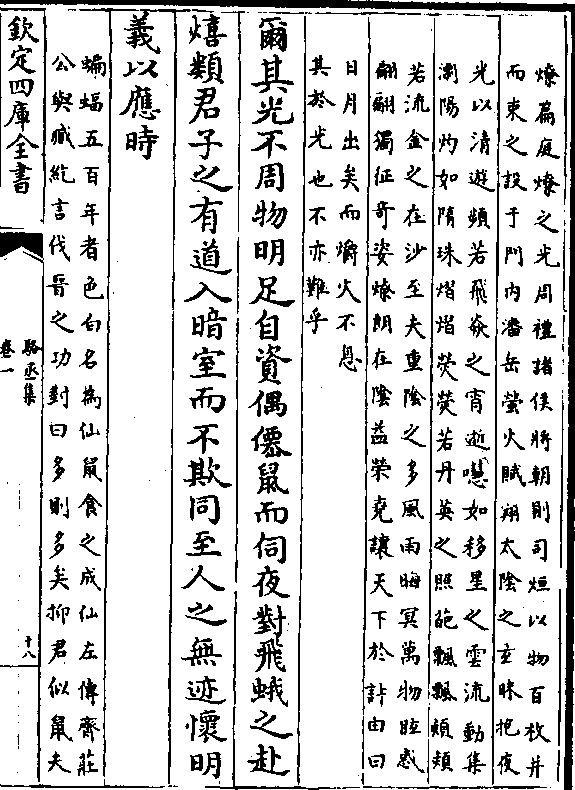 燎扁庭燎之光周禮諸侯將朝則司烜以物百枚并
而束之設于門內潘岳螢火賦翔太陰之玄昧抱夜
光以清遊頻若飛焱之宵逝嘒如移星之雲流動集
瀏陽灼如隋珠熠熠熒熒若丹英之照葩飄飄頻頻
若流金之在沙至夫重陰之多風雨晦冥萬物眩惑
翩翩獨征奇姿燎朗在陰益榮堯讓天下於許由曰
日月出矣而爝火不息
其於光也不亦難乎
爾其光不周物明足自資偶僊鼠而伺夜對飛蛾之赴
熺類君子之有道入暗室而不欺同至人之無迹懷明
義以應時
蝙蝠五百年者色白名為仙鼠食之成仙左傳齊莊
公與臧紇言伐晉之功對曰多則多矣抑君似鼠夫
欽定四庫全書
駱丞集
卷一
十八